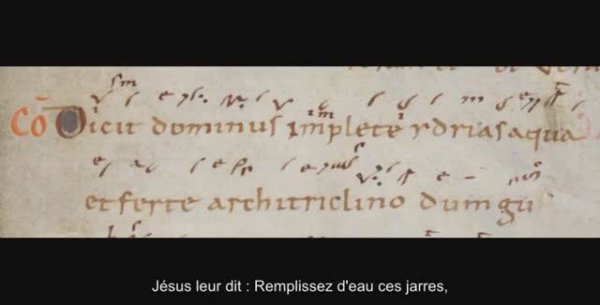 CŌ Dicit dominus implete ydrias aqua
et ferte architriclino dum gu
Jésus leur dit : Remplissez d'eau ces jarres,